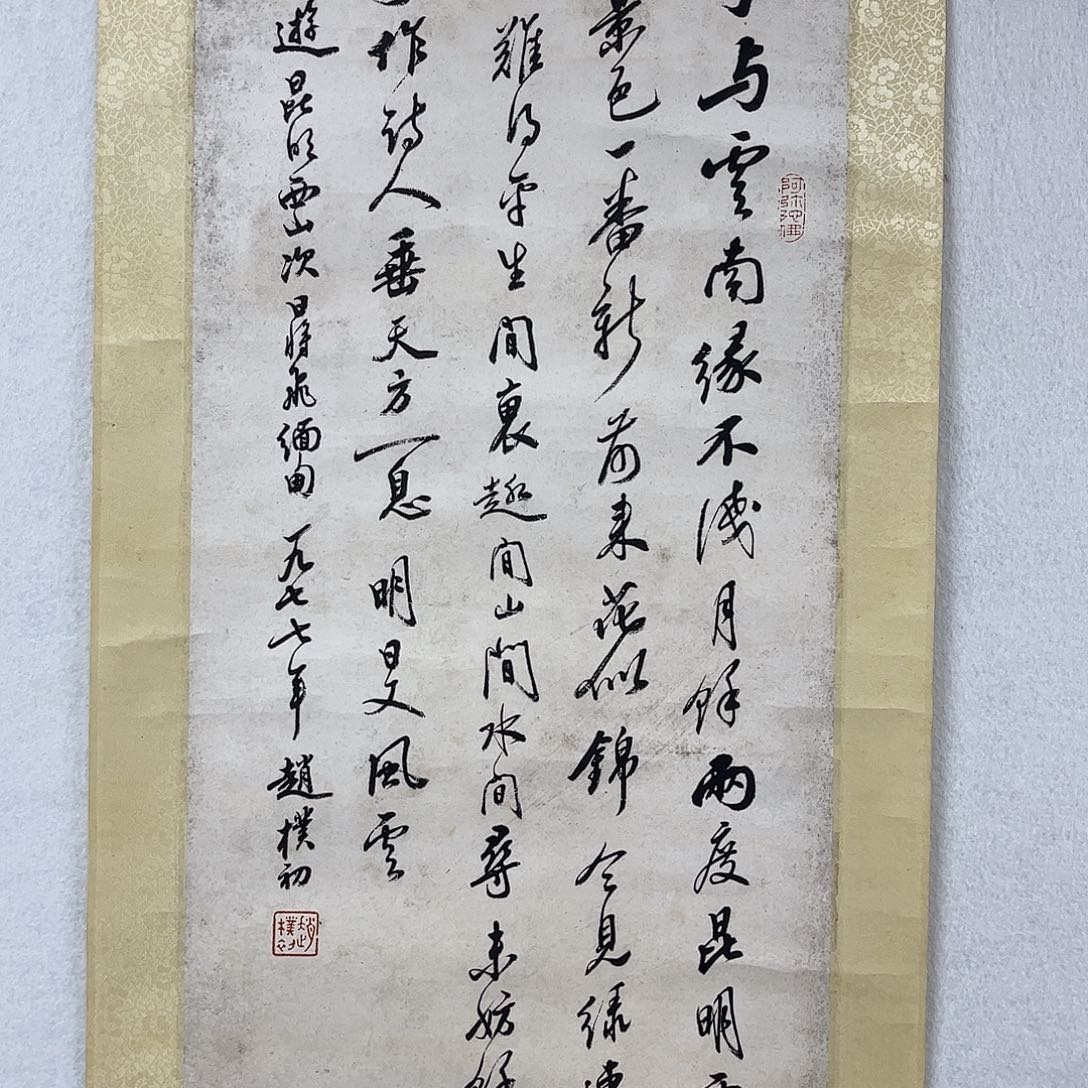 与雲南緣不淺月餘兩度昆明
景色一番新前来花似錦今見緑
難得平生閒裏趣閒山閒水閒尋未妨餘
作詩人垂天方一息明旦又風雲
遊昆明西山次日將飛緬甸一九七七年趙樸初
阿弥陀佛
趙樸初